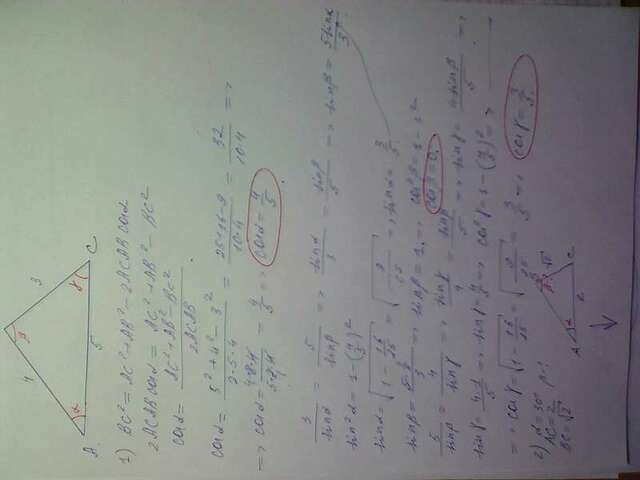 4 3
β
α γ
A. 5 C
1) BC² = AC² + AB² - 2AC AB cosα
2AC AB cosα = AC² + AB² - BC²
cosα = AC² + AB² - BC² / 2AC AB
cosα = 5² + 4² - 3² / 2·5·4 = 25+16-9 / 10·4 = 32 / 10·4 =>
=> cosα = = 4/5 => cosα = 4/5
3/sinα = 5/sinβ => sinα/3 = sinβ/5 => sinβ = 5sinα/3
sin²α = 1 - (4/5)²
sinα = √1 - 16/25 = √9/25 => sinα = 3/5.
=> sinβ = 1. => cos²β = 1 - 1²
cosβ = 0.
5/sinβ = 4/sinγ => sinγ/4 = sinβ/5 => sinγ = 4sinβ/5 =>
sinγ = 4·1/5 => sinγ = 4/5 => cos²γ = 1 - (4/5)² =>
=> cosγ = √1 - 16/25 = √9/25 = 3/5 => cosγ = 3/5.
2) α = 30° β - ?
AC = 2
BC = √2
A α β √2 C 2